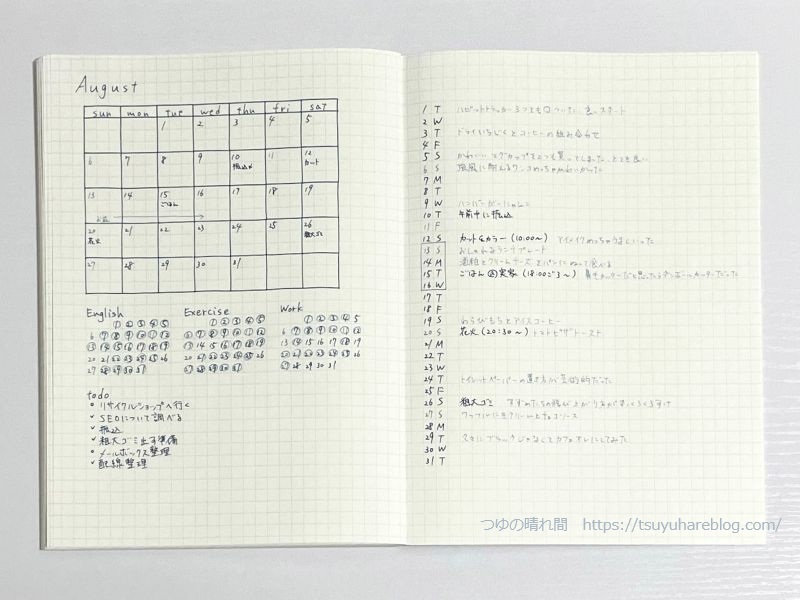 August
sun mon tue wed thu fri sat
1 2 3 4 5
6 7 8 9 10 11 12
振込〆 カット
13 14 15 16 17 18 19
ごはん
お盆
20 21 22 23 24 25 26
花火 粗大ゴミ
27 28 29 30 31
English Exercise Work
1 2 3 4 5 1 2 3 4 5 1 2 3 4 5
6 7 8 9 10 11 12 6 7 8 9 10 11 12 6 7 8 9 10 11 12
13 14 15 16 17 18 19 13 14 15 16 17 18 19 13 14 15 16 17 18 19
20 21 22 23 24 25 26 20 21 22 23 24 25 26 20 21 22 23 24 25 26
27 28 29 30 31 27 28 29 30 31 27 28 29 30 31
todo
リサイクルショップへ行く
SEOについて調べる
振込
粗大ゴミ出す準備
メールボックス整理
配線整理
1 T ハビットトラッカー3つとも○ついた。良いスタート
2 W
3 T ドライいちじくとコーヒーの組み合わせ
4 F
5 S かわいいマグカップを2つも買ってしまった、とても良い
6 S 強風に耐えるワンコめっちゃかわいかった
7 M
8 T
9 W ハンバーガー
10 T 午前中に振込
11 F
12 S カット&カラー (10:00～) アイメイクめっちゃうまくいった
13 S おしゃれなランチプレート
14 M 酒粕とクリームチーズをパンにぬって食べる
15 T ごはん @実家 (18:00ごろ～)
16 W
17 T
18 F
19 S わらびもちとアイスコーヒー
20 S 花火 (20:30～) トマトピザトースト
21 M
22 T
23 W
24 T トイレットペーパーの置き方が芸術的だった
25 F
26 S 粗大ゴミ
27 S ワッフルに生クリームとチョコソース
28 M
29 T スタバでブラックじゃなくてカフェオレにしてみた
30 W
31 T
つゆの晴れ間 https://tsuyuhareblog.com/